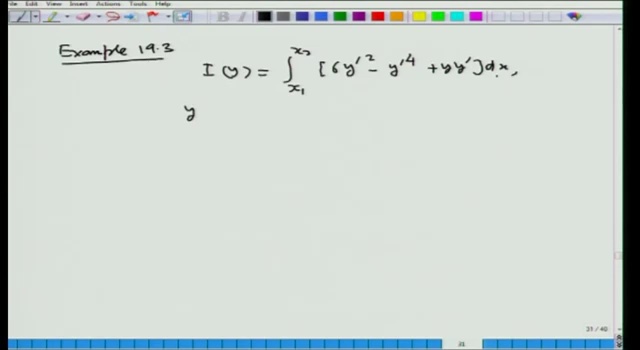 Edit View Insert Actions Tools Help
Example 19.3
I(y) = ∫_{x₁}^{x₂} [6y'² - y'⁴ + yy'] dx,
y
31 / 40
31